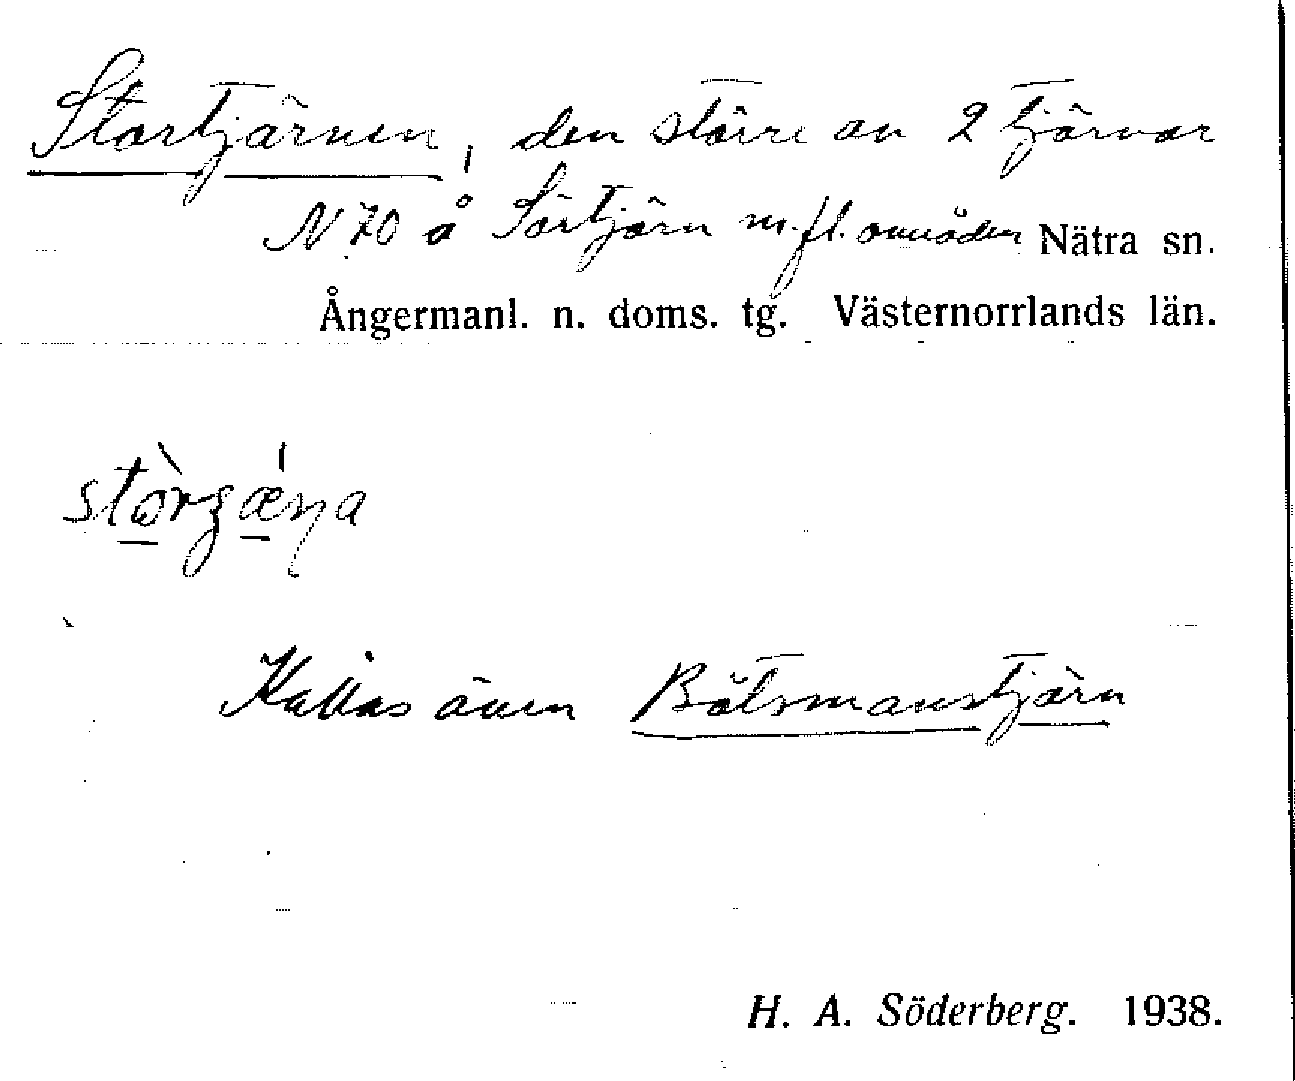 Stortjärnen, den större av 2 tjärnar
N 70 å Sörtjärn m.fl. områden Nätra sn.
Ångermanl. n. doms. tg. Västernorrlands län.
Kallas även Båtsmanstjärn
H. A. Söderberg. 1938.